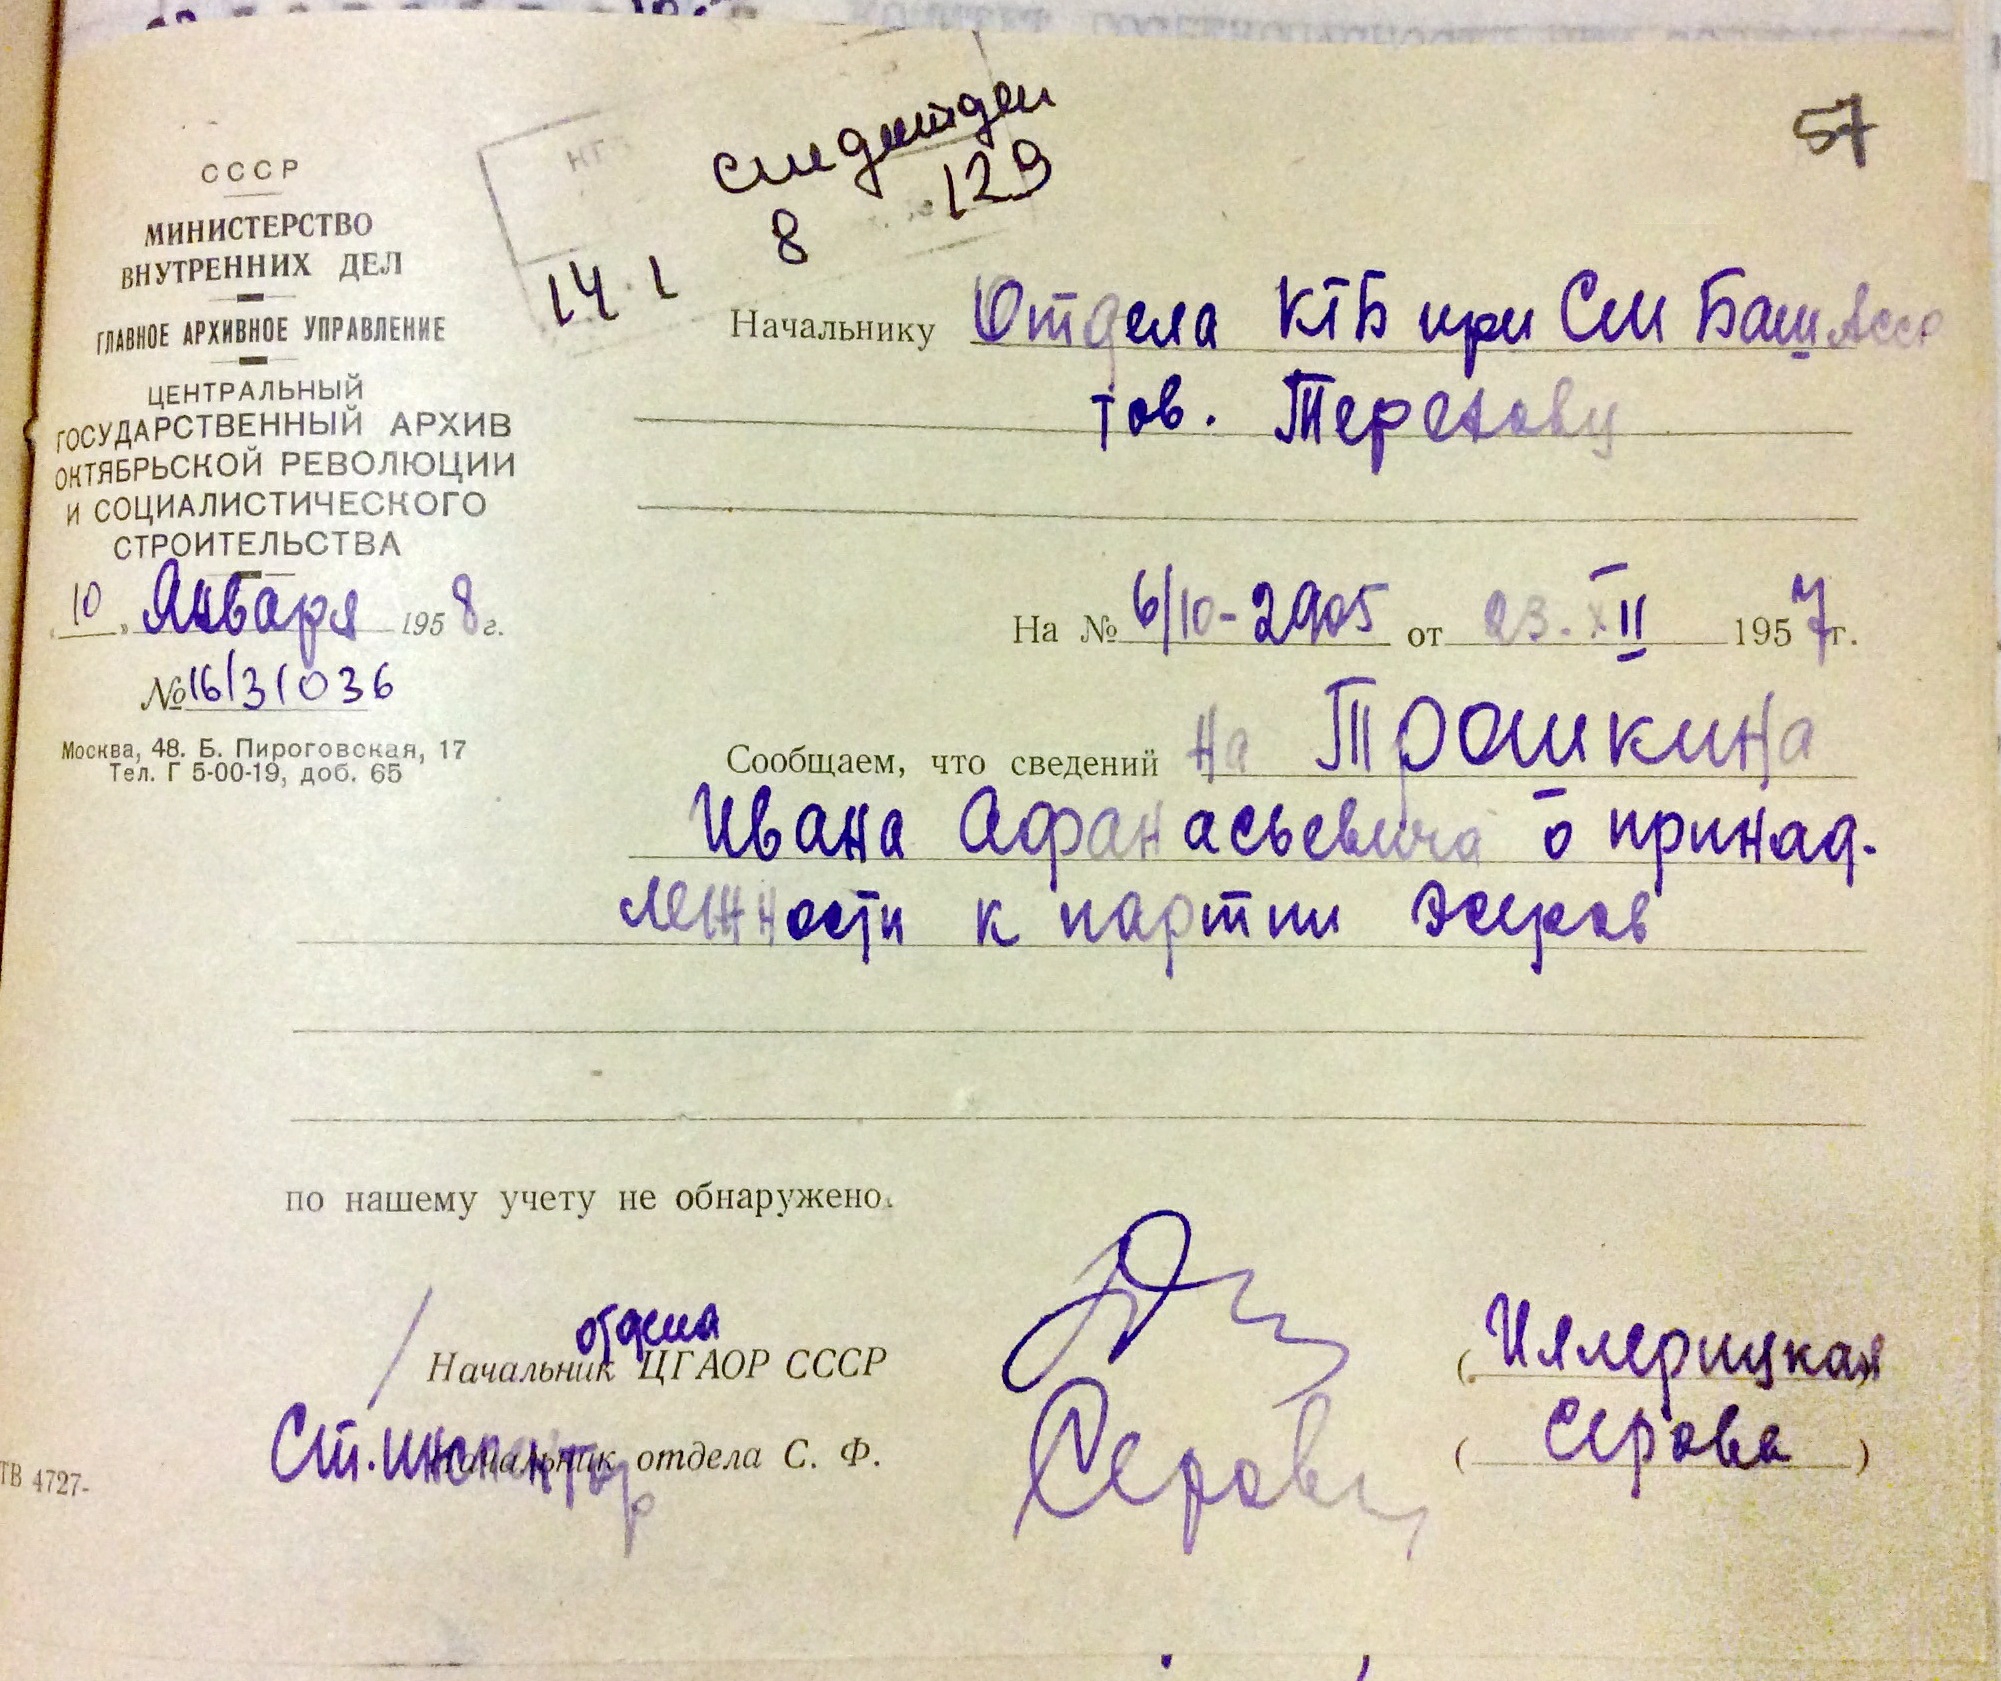 57
следотдел
8 129
14.1
СССР
МИНИСТЕРСТВО
ВНУТРЕННИХ ДЕЛ
ГЛАВНОЕ АРХИВНОЕ УПРАВЛЕНИЕ
ЦЕНТРАЛЬНЫЙ
ГОСУДАРСТВЕННЫЙ АРХИВ
ОКТЯБРЬСКОЙ РЕВОЛЮЦИИ
И СОЦИАЛИСТИЧЕСКОГО
СТРОИТЕЛЬСТВА
„10„ Января 1958г.
№16/31036
Москва, 48. Б. Пироговская, 17
Тел. Г 5-00-19, доб. 65
Начальнику Отдела КГБ при СМ Баш АССР
тов. Терехову
На № 6/10-2905 от 23.XII 1957г.
Сообщаем, что сведений на Трошкина
Ивана Афанасьевича о принад-
лежности к партии эсеров
по нашему учету не обнаружено.
отдела
Начальник ЦГАОР СССР
Ст. инспектор
Начальник отдела С. Ф.
Серова
(Серова)
ТВ 4727-